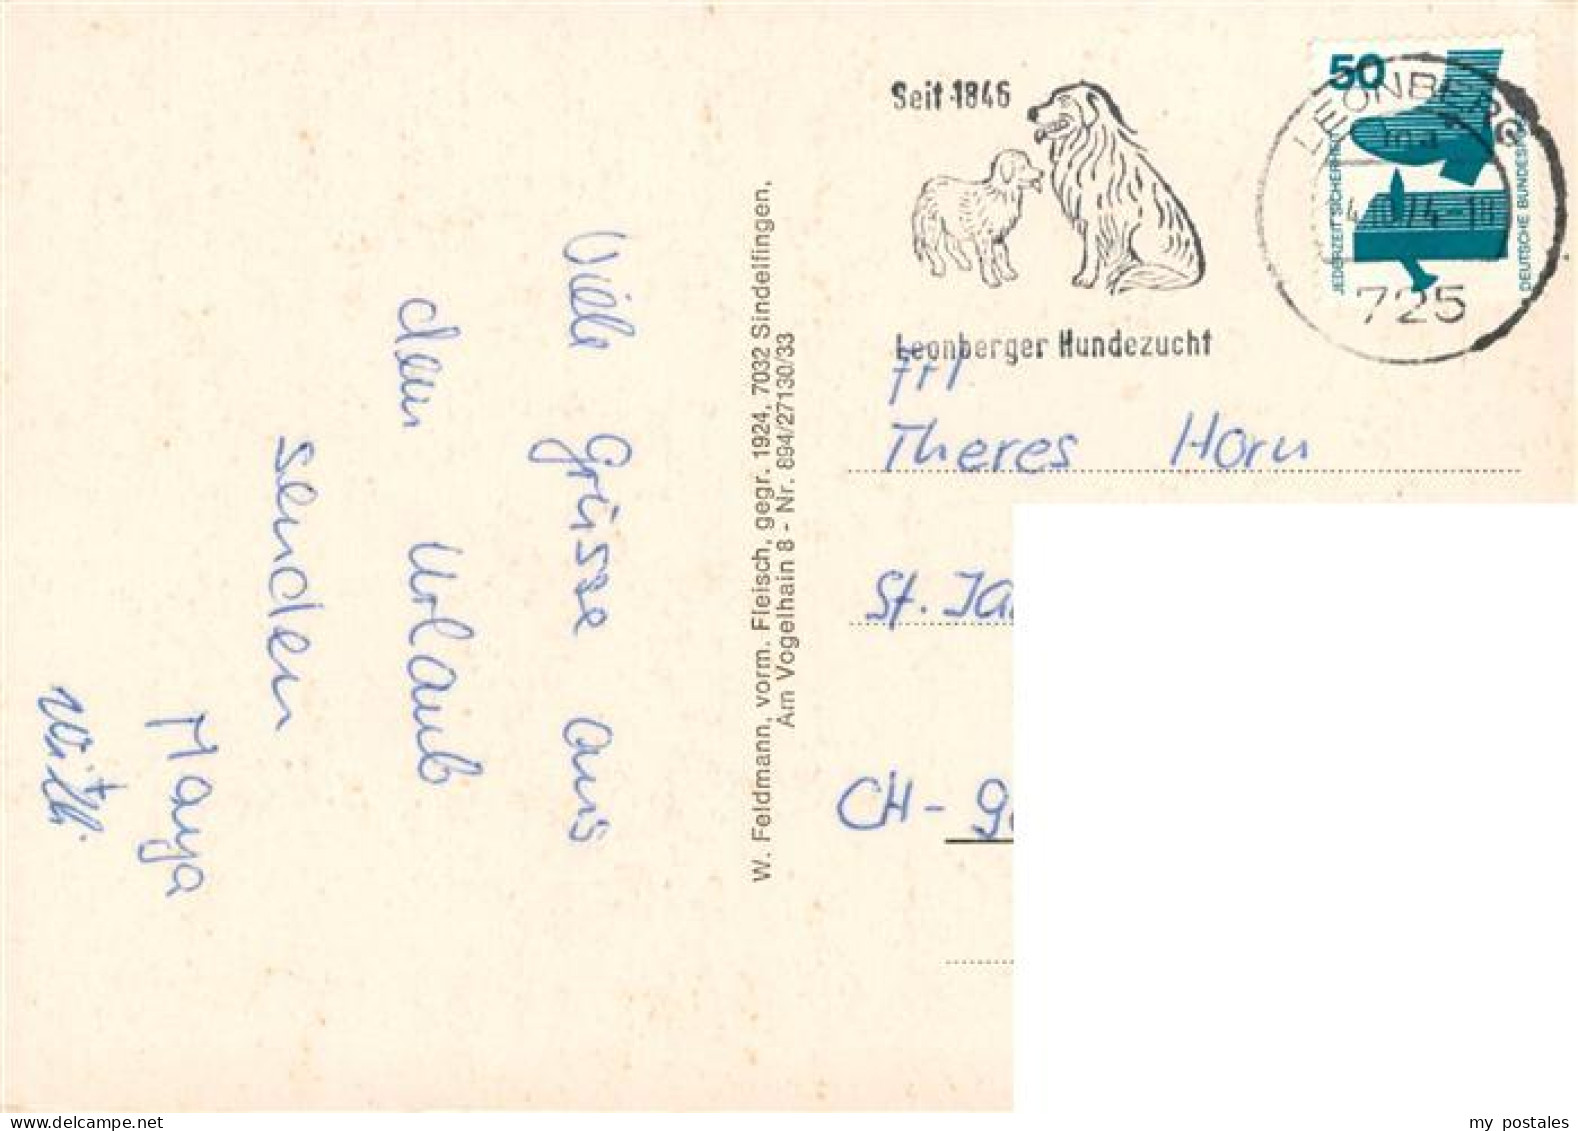 Viele Grüsse aus
dem Urlaub
senden
Manya
Willi
W. Feldmann, vorm. Fleisch, gegr. 1924, 7032 Sindelfingen,
Am Vogelhain 8 - Nr. 894/27130/33
Seit 1846
Leonberger Hundezucht
50
JEDERZEIT SICHERHEIT
DEUTSCHE BUNDESPOST
LEONBERG
725
Frl
Theres Horn
St.
CH-
my postales